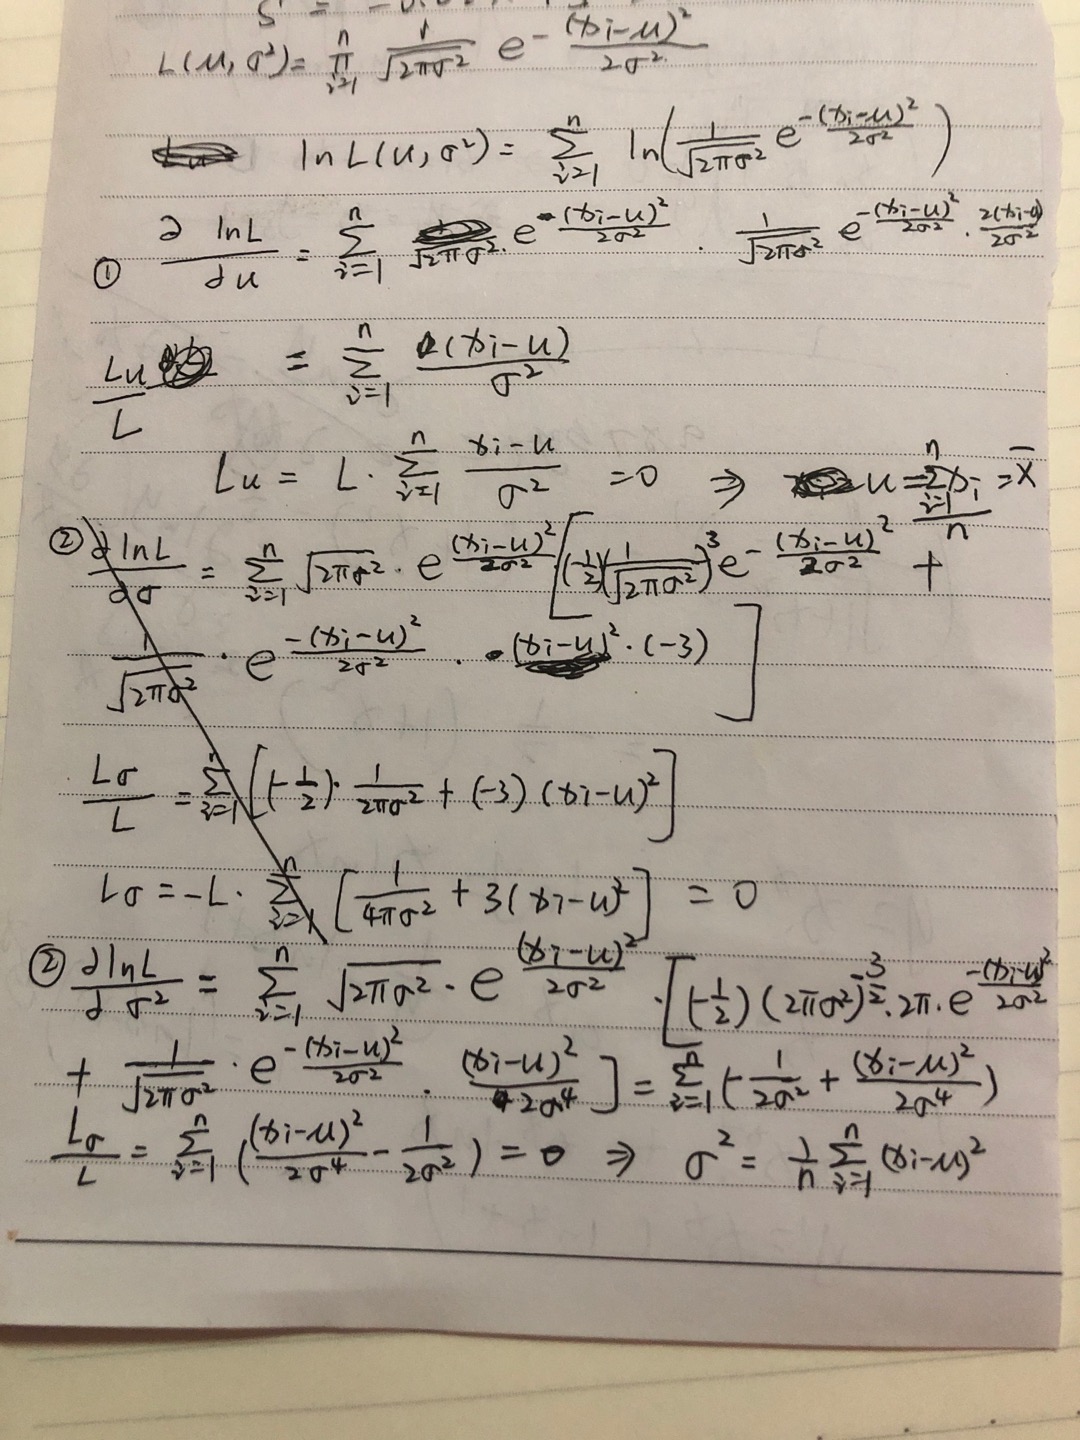 L(μ, σ²) = ∏_{i=1}^{n} 1/√(2πσ²) e^{-(xi-μ)²/2σ²}
ln L(u, σ²) = Σ_{i=1}^{n} ln(1/√(2πσ²) e^{-(xi-u)²/2σ²})
① ∂ lnL/∂u = Σ_{i=1}^{n} √(2πσ²) · e^{(xi-u)²/2σ²} · 1/√(2πσ²) e^{-(xi-u)²/2σ²} · 2(xi-u)/2σ²
Lu/L = Σ_{i=1}^{n} (xi-u)/σ²
Lu = L · Σ_{i=1}^{n} (xi-u)/σ² = 0 ⇒ u = Σ_{i=1}^{n} xi/n = x̄
② ∂ lnL/∂σ = Σ_{i=1}^{n} √(2πσ²) · e^{(xi-u)²/2σ²} [(-1/2)(1/√(2πσ²))³ e^{-(xi-u)²/2σ²} +
1/√(2πσ²) · e^{-(xi-u)²/2σ²} · (xi-u)² · (-3)]
Lσ/L = Σ_{i=1}^{n} [(-1/2) · 1/2πσ² + (-3) (xi-u)²]
Lσ = -L · Σ_{i=1}^{n} [1/4πσ² + 3(xi-u)²] = 0
② ∂ lnL/∂σ² = Σ_{i=1}^{n} √(2πσ²) · e^{(xi-u)²/2σ²} · [(-1/2) (2πσ²)^{-3/2} · 2π · e^{-(xi-u)²/2σ²}
+ 1/√(2πσ²) · e^{-(xi-u)²/2σ²} · (xi-u)²/2σ⁴] = Σ_{i=1}^{n} (-1/2σ² + (xi-μ)²/2σ⁴)
Lσ/L = Σ_{i=1}^{n} ((xi-μ)²/2σ⁴ - 1/2σ²) = 0 ⇒ σ² = 1/n Σ_{i=1}^{n} (xi-μ)²